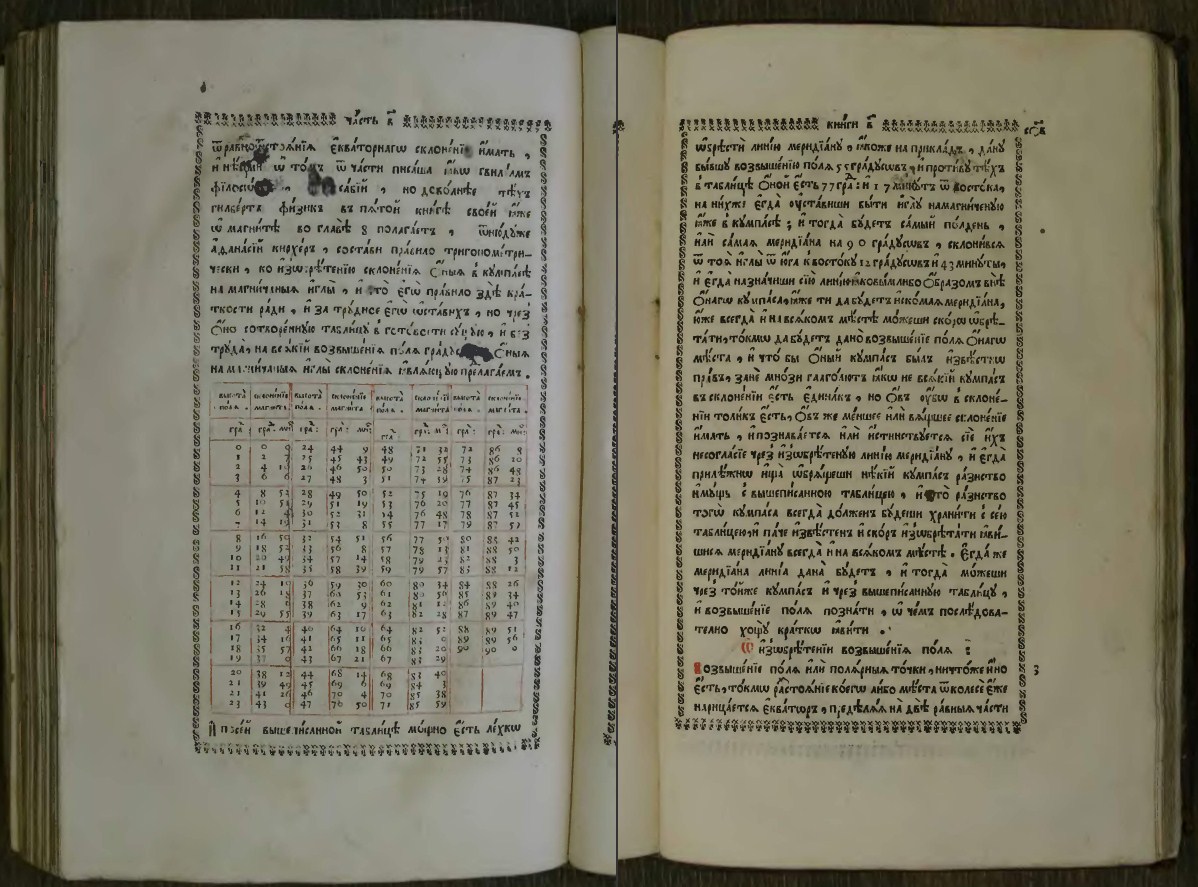 часть в҃
ѿравноⷭ҇тоѧ́нїѧ є҆ква́торнагѡ склоне́нїѧ и҆́мать ,
и҆ ѡ҆ то́мъ ѿ ча́сти писа́ша ꙗ҆́кѡ гвилїа́мъ
но дово́лнѣе тѣ́хъ
гилбе́ртъ фѵ́зикъ въ пѧ́той кни́гѣ свое́й ю҆́же
ѡ҆ магни́тѣ во главѣ̀ 8 полага́етъ , ѿню́дуже
а҆ѳана́сїй кирхе́ръ , соста́ви пра́вило тригонометри́-
чески , ко и҆з̾ѡбрѣ́тенїю склоне́нїѧ ѻ҆́ныѧ в̾ ку́мпасѣ
на магни́чныѧ и҆глы̀ , и҆ то̀ є҆гѡ̀ пра́вило здѣ̀ кра́-
ткости ра́ди , и҆ за тру́дное є҆гѡ̀ ѡ҆ста́вихъ , но чрез̾
ѻ҆́но сотворе́нную табли́цу в̾ гото́вости су́щую , и҆ без̾
труда̀ , на всѧ́кїй возвыше́нїѧ по́лѧ ѻ҆́ныѧ
на магни́чныѧ и҆глы̀ склоне́нїѧ ꙗ҆влѧ́ющую прѐлага́емъ .
высота̀ по́лѧ . склоне́нїе магни́та . высота̀ по́лѧ . склоне́нїе магни́та . высота̀ по́лѧ . склоне́нїе магни́та . высота̀ по́лѧ . склоне́нїе магни́та .
гра́ : гра́ : ми́ : гра́ : гра́ : ми́ : гра́ : гра́ : ми́ : гра́ : гра́ : ми́ :
0 0 0 24 44 9 48 71 32 72 86 8
1 2 7 25 45 43 49 72 55 73 86 20
2 4 26 46 50 50 73 28 74 86 48
3 6 6 27 48 3 51 74 75 87 23
4 8 52 28 49 50 52 75 19 76 87 34
5 10 29 51 19 53 76 20 77 87 45
6 12 4 30 52 31 54 76 48 78 87 52
7 14 19 31 53 8 55 77 17 79 87 57
8 16 50 32 54 51 56 77 50 80 83 42
9 18 52 33 56 8 57 78 13 81 88 50
10 20 49 34 57 14 58 79 23 82 88 3
11 21 58 35 58 39 59 79 57 83 88 12
12 24 36 59 30 60 80 34 84 88 26
13 26 18 37 60 53 61 80 56 85 89 34
14 28 6 38 62 9 62 81 12 86 89 40
15 29 55 39 63 17 63 82 28 87 89 47
16 32 4 40 64 10 64 82 52 88 89 51
17 34 16 41 65 11 65 83 0 89 89 56
18 35 57 42 66 18 66 83 20 90 90 0
19 37 0 43 67 21 67 83 29
20 38 12 44 68 14 68 83 40
21 39 49 45 69 6 69 84 3
21 41 26 46 70 4 70 85 38
23 43 0 47 70 50 71 85 59
И҆ по се́й вышепи́санной табли́цѣ мо́щно є҆́сть ле́хкѡ
кни́ги в҃
со҃в
ѡ҆брѣстѝ лине́ю меридїа́ну , ꙗ҆́коже на прикла́дъ , да́ну
бы́вшу возвыше́нїю по́лѧ 55 гра́дусѡвъ , и҆ проти́ву тѣ́хъ
в̾ табли́цѣ ѻ҆́ной є҆́сть 77 гра́ : и҆ 17 мину́тъ ѿ восто́ка ,
на ни́хже є҆гда̀ ѹ҆ста́виши бы́ти иглу̀ намагни́ченую
ꙗ҆́же в̾ ку́мпасѣ ; и҆ тогда̀ бу́детъ са́мый по́лдень ,
и҆лѝ са́маѧ меридїа́на на 90 гра́дусѡвъ , склони́всѧ
ѿ тоѧ̀ и҆глы̀ ѿ ю҆́га к̾ восто́ку 12 гра́дусѡвъ и҆ 43 мину́ты ,
и҆ є҆гда̀ назна́чиши сїю̀ лине́ю ꙗ҆ковы́мъ ли́бо ѻ҆́бразомъ внѣ̀
ѻ҆́нагѡ ку́мпаса , ꙗ҆́же тѝ да бу́детъ иско́маѧ меридїа́на ,
ю҆́же всегда̀ и҆ на всѧ́комъ мѣ́стѣ мо́жеши ско́рѡ ѡ҆брѣ-
та́ти , то́кмѡ да бу́детъ дано̀ возвыше́нїе по́лѧ ѻ҆́нагѡ
мѣ́ста , и҆ что́ бы ѻ҆́ный ку́мпасъ бы́лъ и҆звѣ́стнѡ
пра́въ , занѐ мно́зи глаго́лютъ ꙗ҆́кѡ не всѧ́кїй ку́мпасъ
въ склоне́нїи є҆́сть є҆ди́накъ , но ѻ҆́въ ѹ҆́бѡ в̾ склоне́-
нїи толи́къ є҆́сть , ѻ҆́въ же ме́ншее и҆лѝ вѧ́щшее склоне́нїе
и҆́мать , и҆ познава́етсѧ и҆лѝ и҆́стинствуетсѧ сїѐ и҆́хъ
несогла́сїе чрез̾ и҆з̾ѡбрѣ́теную лине́ю меридїа́ну , и҆ є҆гда̀
прилѣ́жнѡ и҆щѧ̀ ѡ҆брѧ́щеши нѣ́кїй ку́мпасъ ра́знство
и҆му́щь с̾ вышепи́санною табли́цею , и҆ то̀ ра́знство
тогѡ̀ ку́мпаса всегда̀ до́лженъ бу́деши храни́ти с̾ се́ю
табли́цею , и҆ па́че и҆звѣ́стенъ и҆ ско́ръ и҆з̾ѡбрѣта́ти ꙗ҆ви́-
шисѧ меридїа́ну всегда̀ и҆ на всѧ́комъ мѣ́стѣ . Є҆гда́ же
меридїа́на ли́нїа дана̀ бу́детъ , и҆ тогда̀ мо́жеши
чрез̾ то́йже ку́мпасъ и҆ чрез̾ вышепи́санную табли́цу ,
и҆ возвыше́нїе по́лѧ позна́ти , ѡ҆ че́мъ послѣ́дова-
телно хощу̀ кра́ткѡ ꙗ҆ви́ти .
Ѡ҆ и҆з̾ѡбрѣ́тенїи возвыше́нїѧ по́лѧ :
Возвыше́нїе по́лѧ и҆лѝ полѧ́рныѧ то́чки , ничто́же и҆́но
є҆́сть , то́кмѡ растоѧ́нїе ко́егѡ ли́бо мѣ́ста ѿ колесѐ є҆́же
нарица́етсѧ є҆ква́торъ , предѣлѧ́ѧ на двѣ̀ ра́вныѧ ча́сти
3